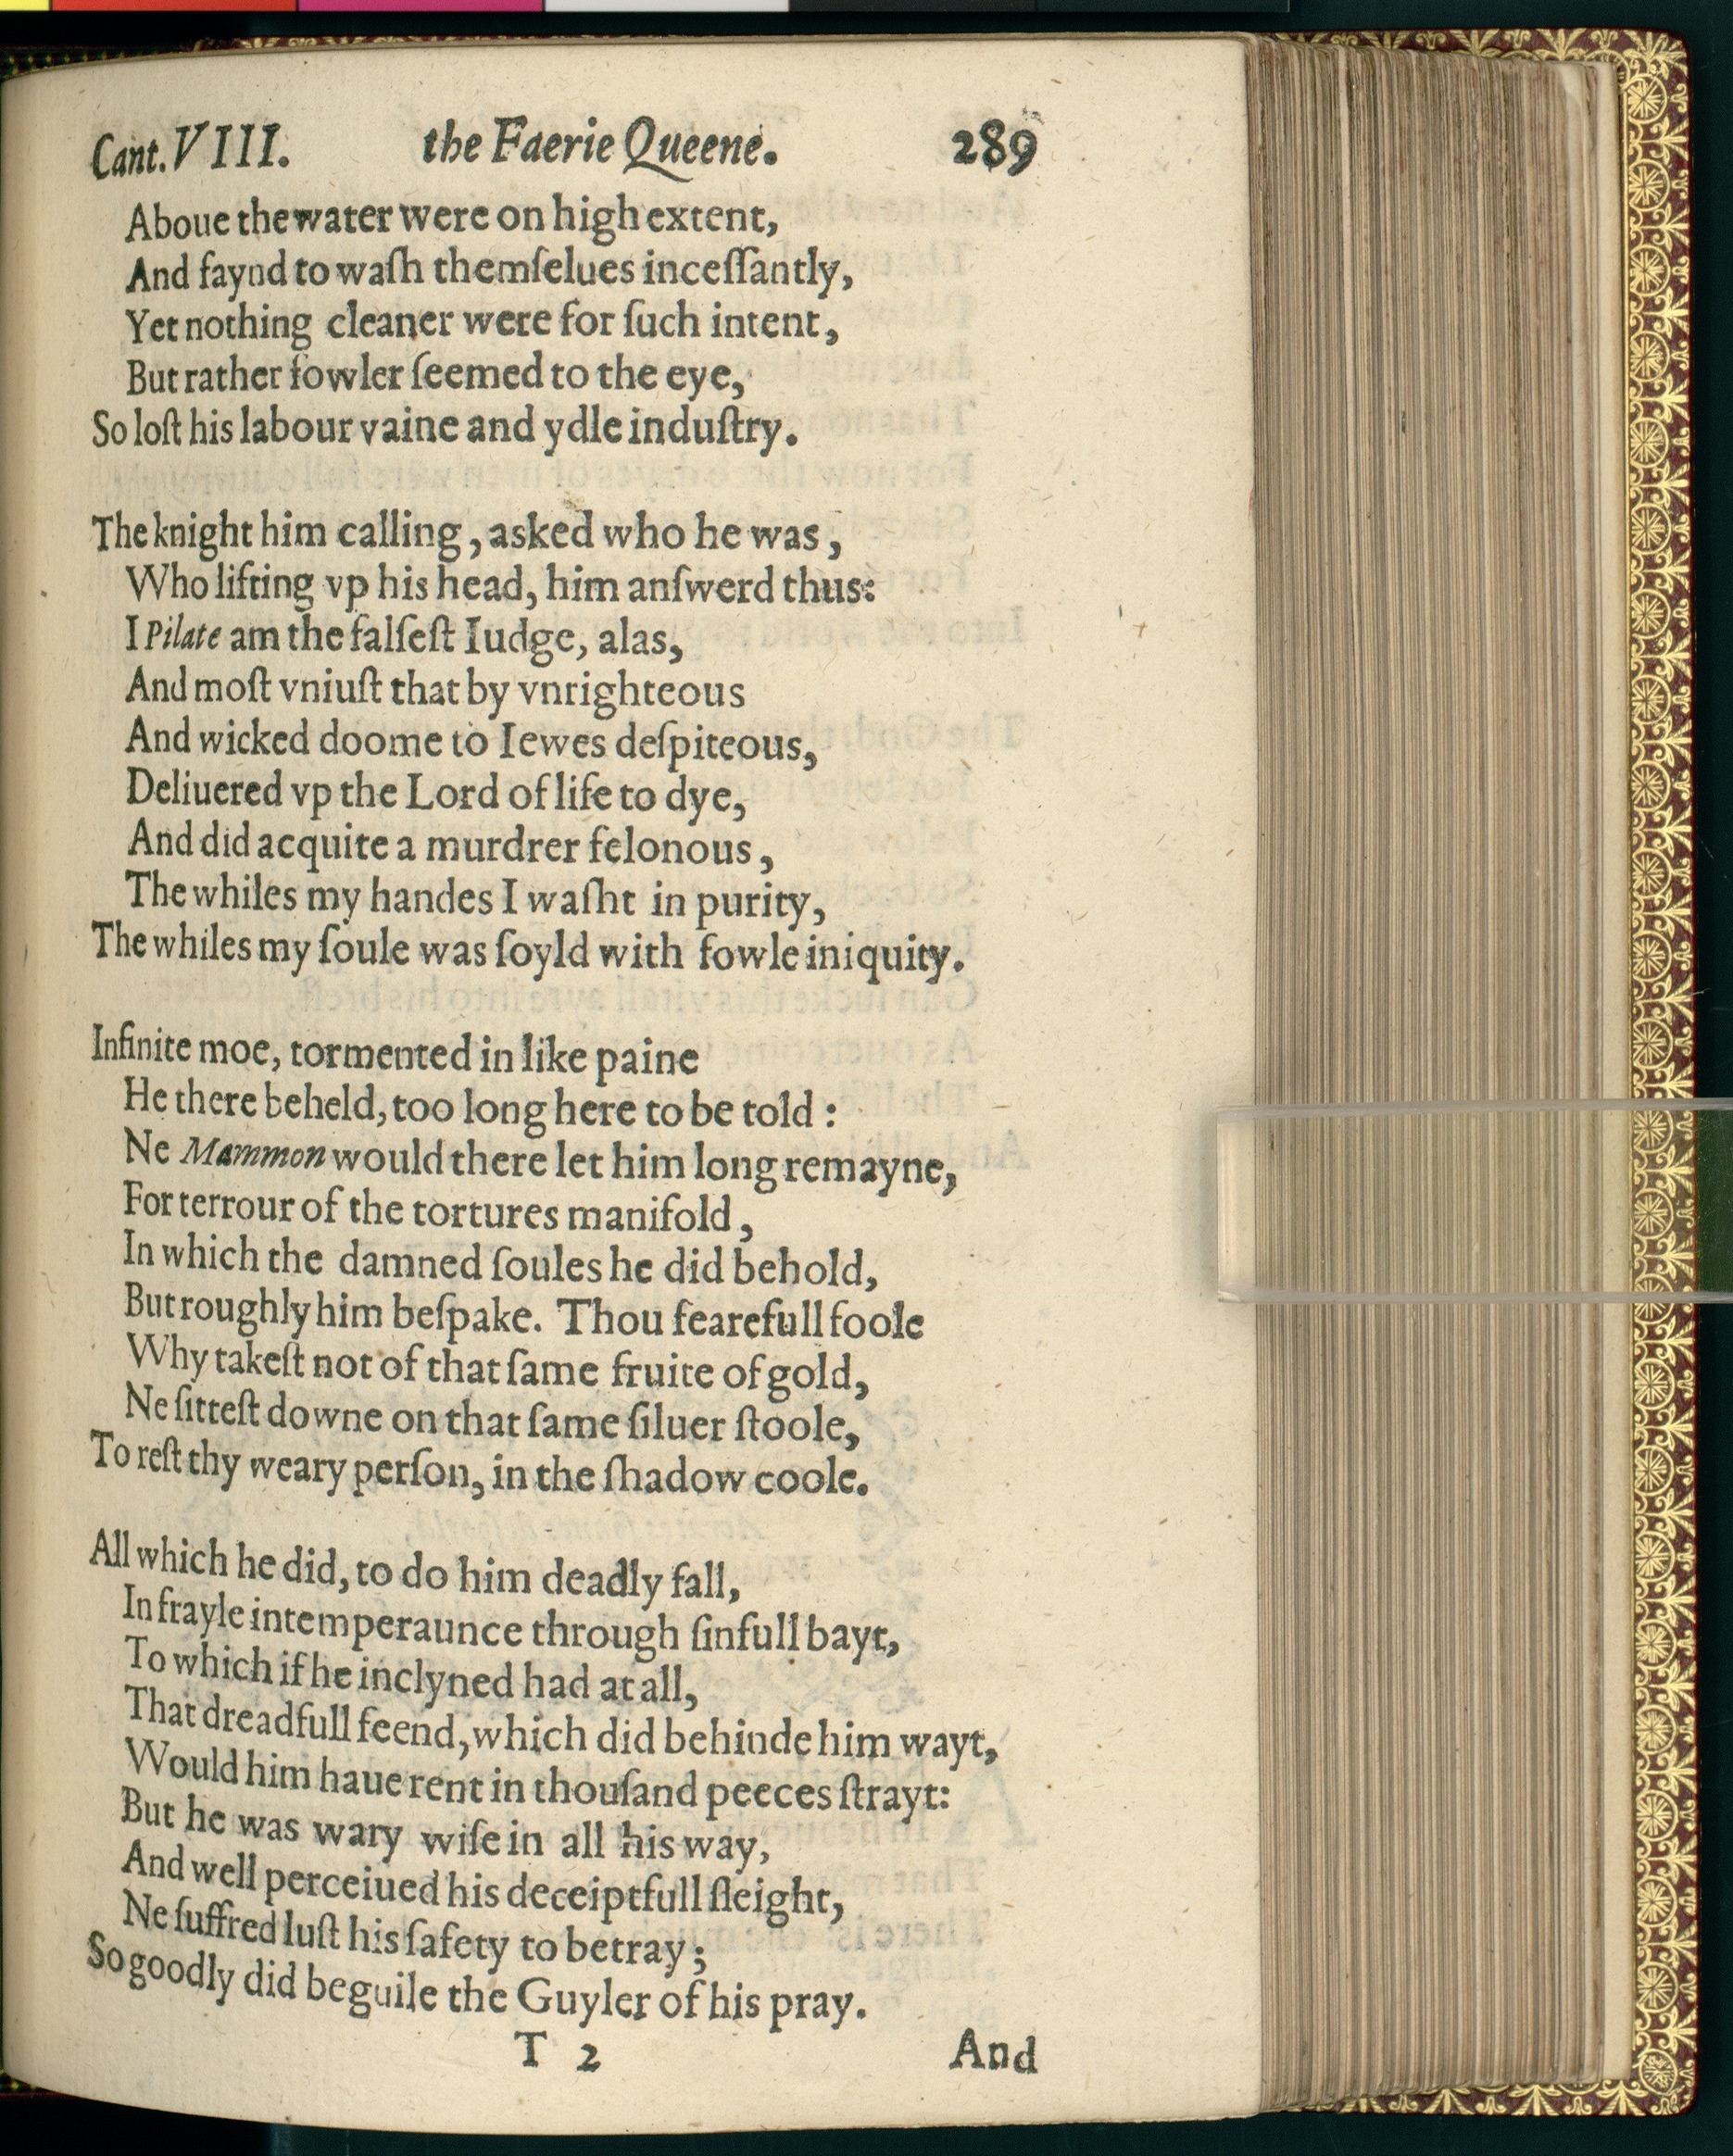 Cant. VIII. the Faerie Queene. 289
Aboue the water were on high extent,
And faynd to waſh themſelues inceſſantly,
Yet nothing cleaner were for ſuch intent,
But rather fowler ſeemed to the eye,
So loſt his labour vaine and ydle induſtry.
The knight him calling, asked who he was,
Who lifting vp his head, him anſwerd thus:
I Pilate am the falſeſt Iudge, alas,
And moſt vniuſt that by vnrighteous
And wicked doome to Iewes deſpiteous,
Deliuered vp the Lord of life to dye,
And did acquite a murdrer felonous,
The whiles my handes I waſht in purity,
The whiles my ſoule was ſoyld with fowle iniquity.
Infinite moe, tormented in like paine
He there beheld, too long here to be told:
Ne Mammon would there let him long remayne,
For terrour of the tortures manifold,
In which the damned ſoules he did behold,
But roughly him beſpake. Thou fearefull foole
Why takeſt not of that ſame fruite of gold,
Ne ſitteſt downe on that ſame ſiluer ſtoole,
To reſt thy weary perſon, in the ſhadow coole.
All which he did, to do him deadly fall,
In frayle intemperaunce through ſinfull bayt,
To which if he inclyned had at all,
That dreadfull feend, which did behinde him wayt,
Would him haue rent in thouſand peeces ſtrayt:
But he was wary wiſe in all his way,
And well perceiued his deceiptfull ſleight,
Ne ſuffred luſt his ſafety to betray;
So goodly did beguile the Guyler of his pray.
T 2 And